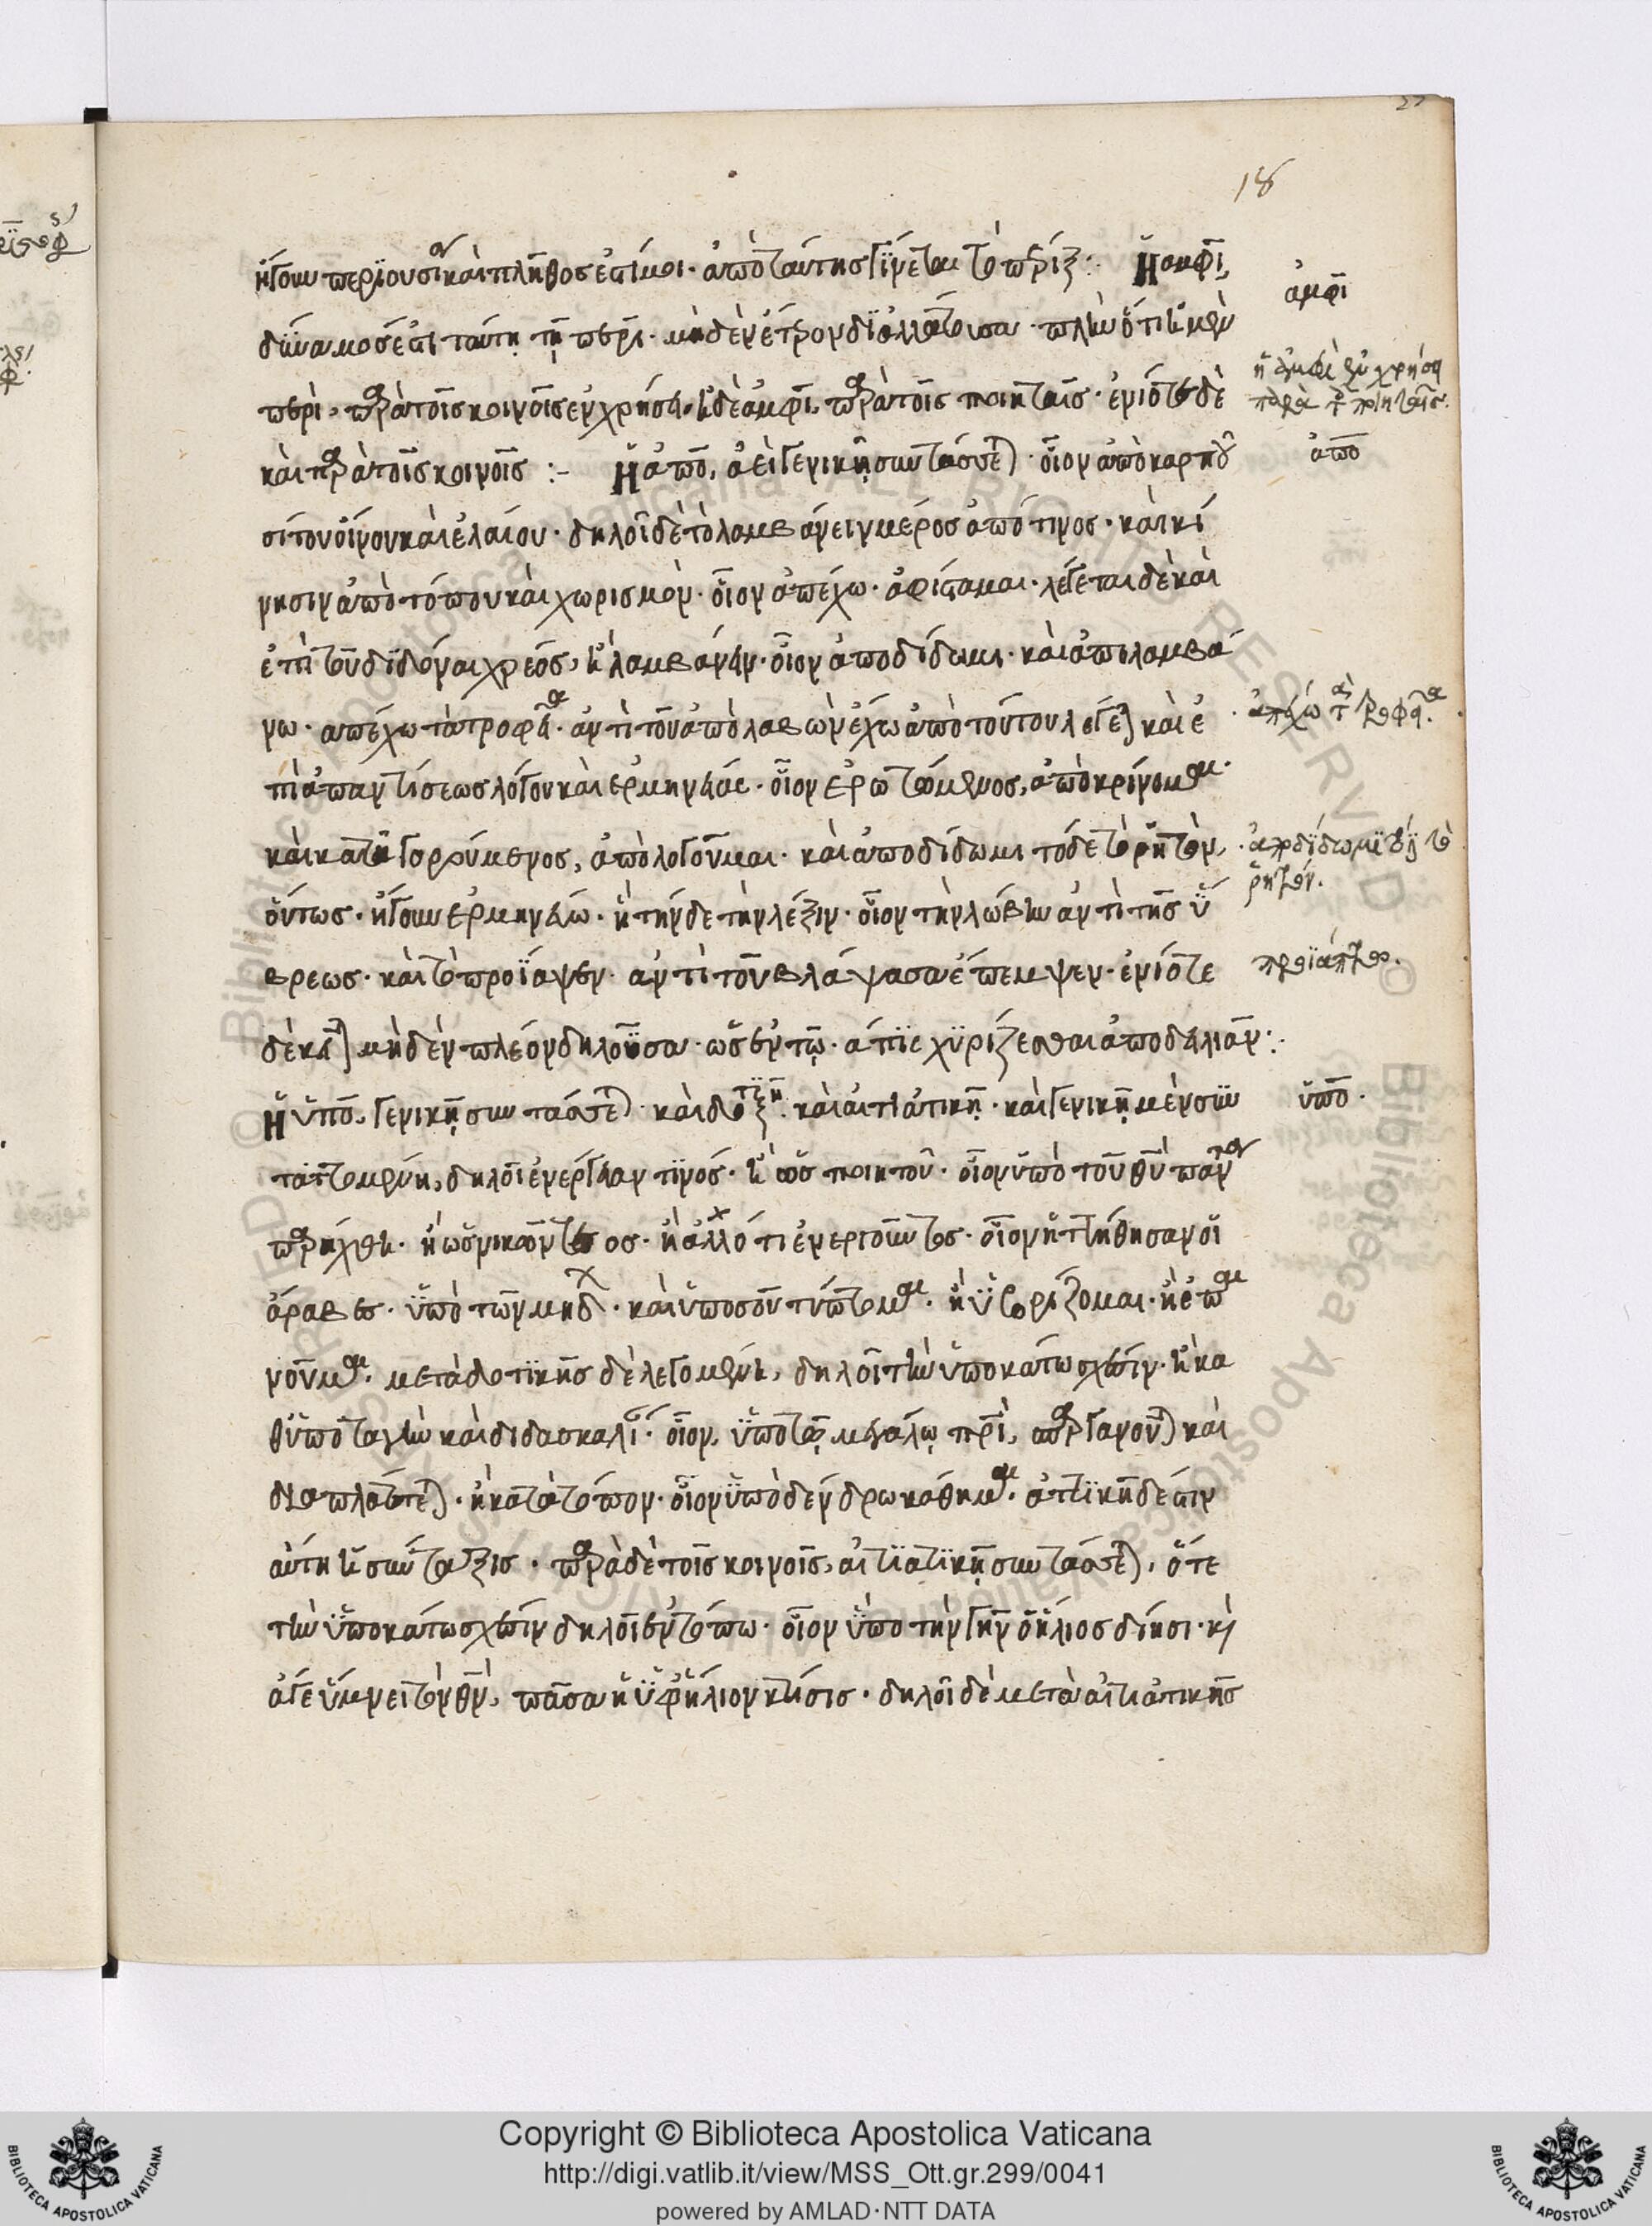 18
ἤγουν περιουσίαν καὶ πλῆθος ἐστί μοι· ἀπὸ ταύτης γίνεται τὸ πρίξ:· Ἡ ἀμφὶ,
δύναμος ἐστὶ ταύτῃ τῇ περὶ· μηδὲν ἕτερον διαλλάττουσα· πλὴν ὅτι ἡ μὲν
περὶ, παρὰ τοῖς κοινοῖς ἐν χρήσει· ἡ δὲ ἀμφὶ, παρὰ τοῖς ποιηταῖς· ἐνίοτε δὲ
καὶ παρὰ τοῖς κοινοῖς :- Ἡ ἀπὸ, ἀεὶ γενικῇ συντάσσεται· οἷον ἀπὸ καρποῦ
σίτου οἴνου καὶ ἐλαίου· δηλοῖ δὲ τὸ λαμβάνειν μέρος ἀπό τινος· καὶ κί
νησιν ἀπὸ τόπου καὶ χωρισμὸν· οἷον ἀπέχω· ἀφίσταμαι· λέγεται δὲ καὶ
ἐπὶ τοῦ διδόναι χρέος, ἢ λαμβάνειν· οἷον ἀποδίδωμι· καὶ ἀπολαμβά
νω· ἀπέχω τὰ τροφεῖα· ἀντὶ τοῦ ἀπολαβὼν ἔχω ἀπὸ τούτου λέγεται καὶ ἐ
πὶ ἀπαντήσεως λόγου καὶ ἑρμηνείας· οἷον ἐρωτώμενος, ἀποκρίνομαι·
καὶ κατηγορούμενος, ἀπολογοῦμαι· καὶ ἀποδίδωμι τόδε τὸ ῥητὸν,
οὕτως· ἤγουν ἑρμηνεύω· ἢ τήνδε τὴν λέξιν· οἷον τὴν λώβην ἀντὶ τῆς ὕ
βρεως· καὶ τὸ προΐαψεν· ἀντὶ τοῦ βλάψασα ἔπεμψεν· ἐνίοτε
δὲ κεῖται μηδὲν πλέον δηλοῦσα· ὡς ἐν τῷ· ἀπισχυρίζεσθαι ἀποδειλιᾶν:·
Ἡ ὑπὸ, γενικῇ συντάσσεται· καὶ δοτικῇ· καὶ αἰτιατικῇ· καὶ γενικῇ μὲν συν
ταττομένη, δηλοῖ ἐνέργειαν τινός· ἢ ὡς ποιητοῦ· οἷον ὑπὸ τοῦ θυ πάντα
παρήχθη· ἢ ὡς νικῶντος· ἢ ἄλλό τι ἐνεργοῦντος· οἷον ἡττήθησαν οἱ
ἄραβες· ὑπὸ τῶν μήδων· καὶ ὑπὸ σοῦ τύπτομαι· ἢ ὑβρίζομαι· ἢ ἐπαι
νοῦμαι· μετὰ δοτικῆς δὲ λεγομένη, δηλοῖ τὴν ὑποκάτω σχέσιν· ἢ κα
θυποταγὴν καὶ διδασκαλίαν· οἷον, ὑπὸ τῷ μεγάλῳ πρὶ, παργανοῦται καὶ
διαπλάττεται· ἢ κατὰ τόπον· οἷον ὑπὸ δένδρω κάθημαι· ἀττικὴ δέ ἐστιν
αὕτη ἡ σύνταξις· παρὰ δὲ τοῖς κοινοῖς, αἰτιατικῇ συντάσσεται, ὅτε
τὴν ὑποκάτω σχέσιν δηλοῖ ἐν τόπω· οἷον ὑπὸ τὴν γῆν ὁ ἥλιος δύησι· καὶ
ἄγε ὕμνει τὸν θν, πᾶσα ἡ ὑφήλιον κτίσις· δηλοῖ δὲ μετὰ αἰτιατικῆς
ἀμφὶ
ἡ ἀμφὶ ἐν χρήσει
παρὰ τοῖς ποιηταῖς.
ἀπὸ
ἀπέχω τὰ τροφεῖα.
ἀποδίδωμι τόδε τὸ
ῥητόν.
προϊάπτω.
ὑπὸ.
Copyright © Biblioteca Apostolica Vaticana
http://digi.vatlib.it/view/MSS_Ott.gr.299/0041
powered by AMLAD·NTT DATA
BIBLIOTECA APOSTOLICA VATICANA
BIBLIOTECA APOSTOLICA VATICANA